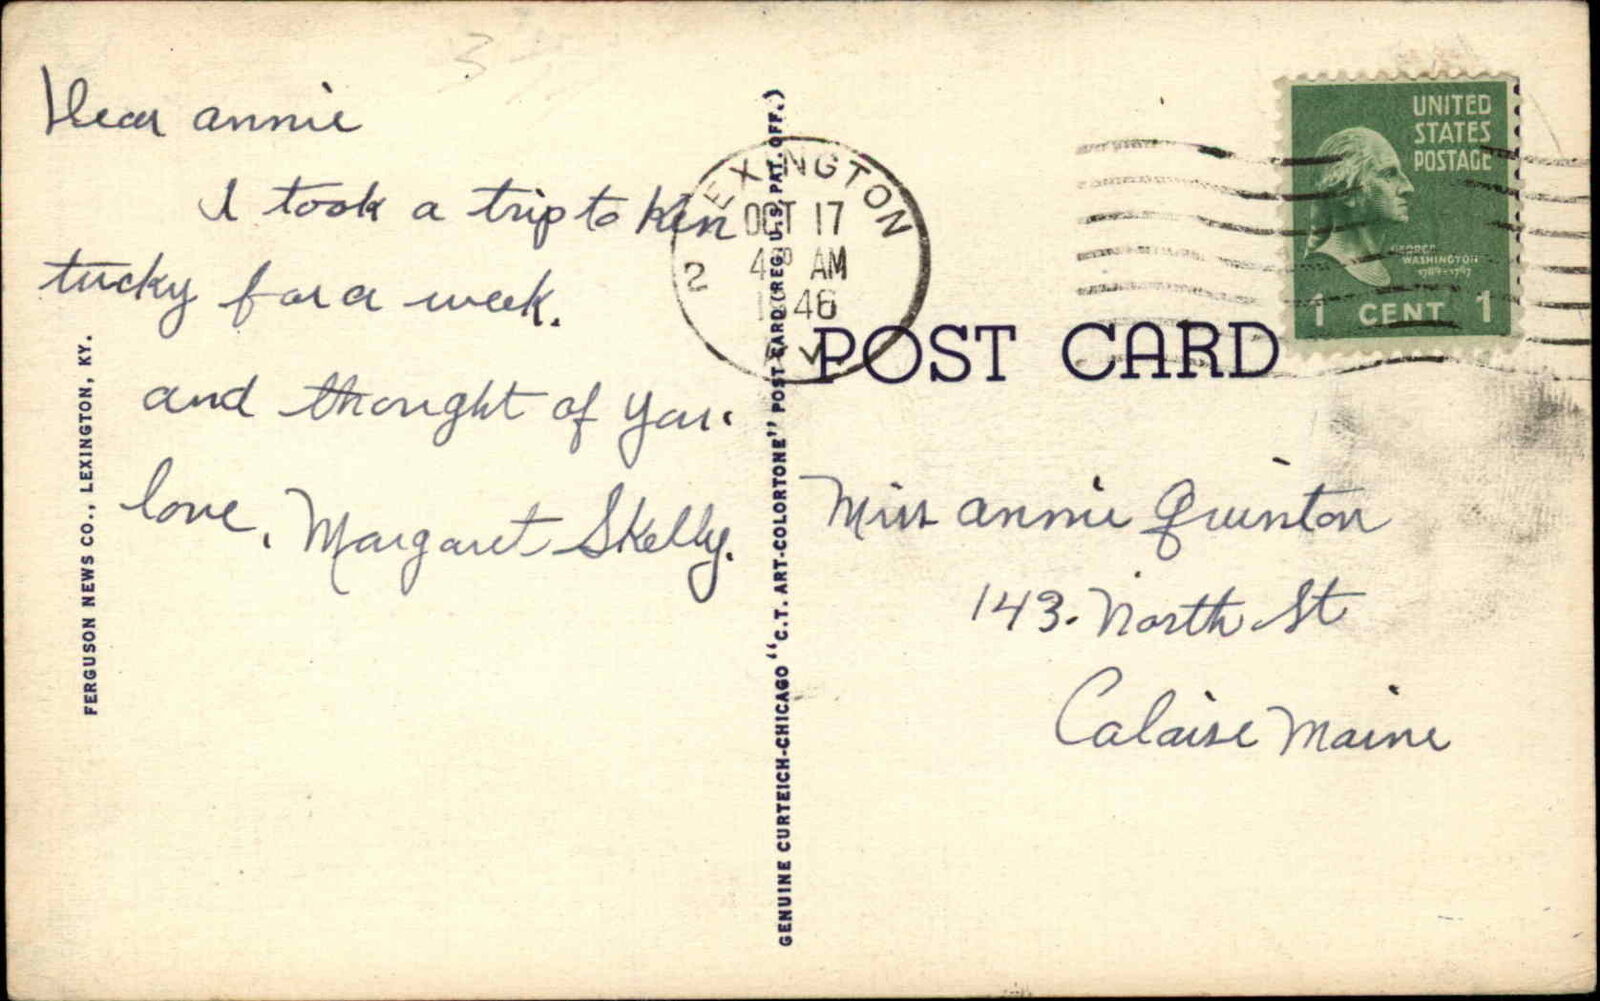 3
Dear annie
I took a trip to Ken
tucky for a week.
and thought of you.
love, Margaret Skelly.
FERGUSON NEWS CO., LEXINGTON, KY.
GENUINE CURTEICH-CHICAGO "C.T. ART-COLORTONE" POST CARD (REG. U.S. PAT. OFF.)
LEXINGTON
OCT 17
AM
1946
2
UNITED
STATES
POSTAGE
GEORGE
WASHINGTON
1789-1797
1 CENT 1
POST CARD
Miss annie Quinton
143. North St
Calaise Maine